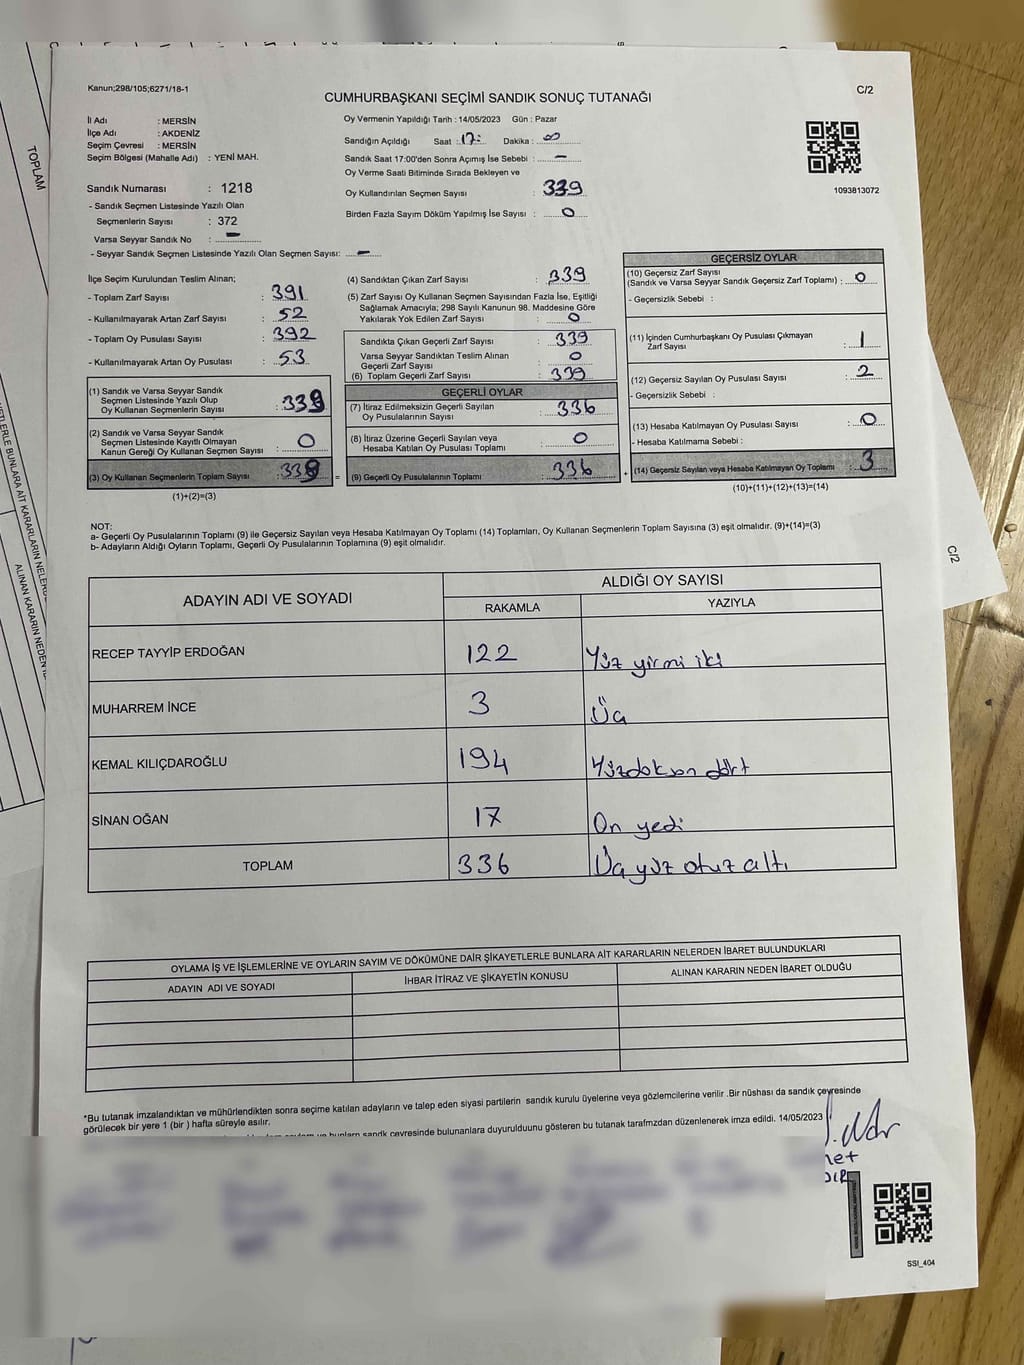 Kanun;298/105;6271/18-1
C/2
CUMHURBAŞKANI SEÇİMİ SANDIK SONUÇ TUTANAĞI
İl Adı : MERSİN
İlçe Adı : AKDENİZ
Seçim Çevresi : MERSİN
Seçim Bölgesi (Mahalle Adı) : YENİ MAH.
Sandık Numarası : 1218
- Sandık Seçmen Listesinde Yazılı Olan
Seçmenlerin Sayısı : 372
Varsa Seyyar Sandık No : –
- Seyyar Sandık Seçmen Listesinde Yazılı Olan Seçmen Sayısı: –
Oy Vermenin Yapıldığı Tarih : 14/05/2023 Gün : Pazar
Sandığın Açıldığı Saat : 17: Dakika : 00
Sandık Saat 17:00'den Sonra Açımış İse Sebebi : –
Oy Verme Saati Bitiminde Sırada Bekleyen ve
Oy Kullandırılan Seçmen Sayısı : 339
Birden Fazla Sayım Döküm Yapılmış İse Sayısı : 0
1093813072
İlçe Seçim Kurulundan Teslim Alınan;
- Toplam Zarf Sayısı : 391
- Kullanılmayarak Artan Zarf Sayısı : 52
- Toplam Oy Pusulası Sayısı : 392
- Kullanılmayarak Artan Oy Pusulası : 53
(1) Sandık ve Varsa Seyyar Sandık
Seçmen Listesinde Yazılı Olup
Oy Kullanan Seçmenlerin Sayısı : 339
(2) Sandık ve Varsa Seyyar Sandık
Seçmen Listesinde Kayıtlı Olmayan
Kanun Gereği Oy Kullanan Seçmen Sayısı : 0
(3) Oy Kullanan Seçmenlerin Toplam Sayısı : 339
(1)+(2)=(3)
(4) Sandıktan Çıkan Zarf Sayısı : 339
(5) Zarf Sayısı Oy Kullanan Seçmen Sayısından Fazla İse, Eşitliği
Sağlamak Amacıyla; 298 Sayılı Kanunun 98. Maddesine Göre
Yakılarak Yok Edilen Zarf Sayısı : 0
Sandıkta Çıkan Geçerli Zarf Sayısı : 339
Varsa Seyyar Sandıktan Teslim Alınan
Geçerli Zarf Sayısı : 0
(6) Toplam Geçerli Zarf Sayısı : 339
GEÇERLİ OYLAR
(7) İtiraz Edilmeksizin Geçerli Sayılan
Oy Pusulalarının Sayısı : 336
(8) İtiraz Üzerine Geçerli Sayılan veya
Hesaba Katılan Oy Pusulası Toplamı : 0
= (9) Geçerli Oy Pusulalarının Toplamı : 336
GEÇERSİZ OYLAR
(10) Geçersiz Zarf Sayısı
(Sandık ve Varsa Seyyar Sandık Geçersiz Zarf Toplamı) : 0
- Geçersizlik Sebebi :
(11) İçinden Cumhurbaşkanı Oy Pusulası Çıkmayan
Zarf Sayısı : 1
(12) Geçersiz Sayılan Oy Pusulası Sayısı : 2
- Geçersizlik Sebebi :
(13) Hesaba Katılmayan Oy Pusulası Sayısı : 0
- Hesaba Katılmama Sebebi :
+ (14) Geçersiz Sayılan veya Hesaba Katılmayan Oy Toplamı : 3
(10)+(11)+(12)+(13)=(14)
NOT:
a- Geçerli Oy Pusulalarının Toplamı (9) ile Geçersiz Sayılan veya Hesaba Katılmayan Oy Toplamı (14) Toplamları, Oy Kullanan Seçmenlerin Toplam Sayısına (3) eşit olmalıdır. (9)+(14)=(3)
b- Adayların Aldığı Oyların Toplamı, Geçerli Oy Pusulalarının Toplamına (9) eşit olmalıdır.
ADAYIN ADI VE SOYADI
ALDIĞI OY SAYISI
RAKAMLA YAZIYLA
RECEP TAYYİP ERDOĞAN 122 Yüz yirmi iki
MUHARREM İNCE 3 Üç
KEMAL KILIÇDAROĞLU 194 Yüzdoksan dört
SİNAN OĞAN 17 On yedi
TOPLAM 336 Üçyüz otuz altı
OYLAMA İŞ VE İŞLEMLERİNE VE OYLARIN SAYIM VE DÖKÜMÜNE DAİR ŞİKAYETLERLE BUNLARA AİT KARARLARIN NELERDEN İBARET BULUNDUKLARI
ADAYIN ADI VE SOYADI
İHBAR İTİRAZ VE ŞİKAYETİN KONUSU
ALINAN KARARIN NEDEN İBARET OLDUĞU
*Bu tutanak imzalandıktan ve mühürlendikten sonra seçime katılan adayların ve talep eden siyasi partilerin sandık kurulu üyelerine veya gözlemcilerine verilir .Bir nüshası da sandık çevresinde
görülecek bir yere 1 (bir ) hafta süreyle asılır.
ve bunların sandık çevresinde bulunanlara duyurulduunu gösteren bu tutanak tarafmzdan düzenlenerek imza edildi. 14/05/2023
SSI_404
TOPLAM
C/2